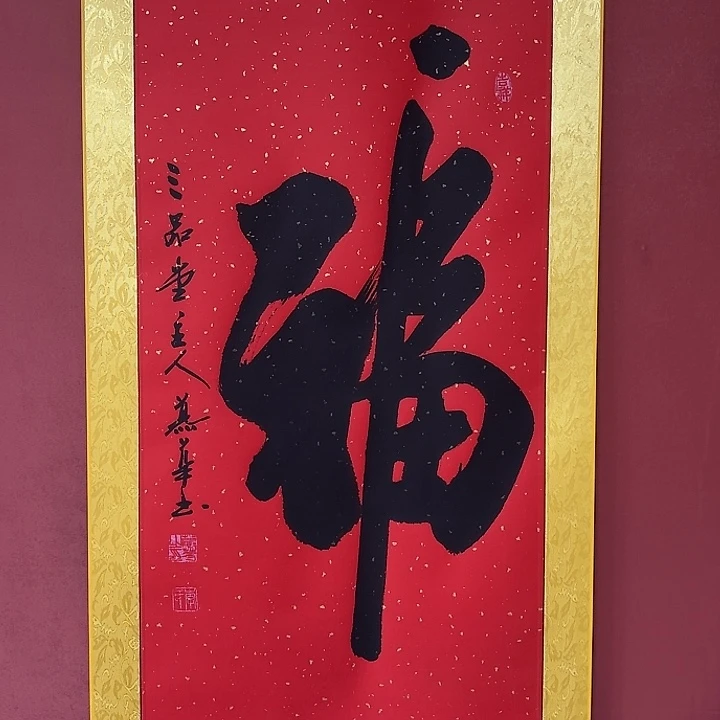 福
三品堂主人慕華书